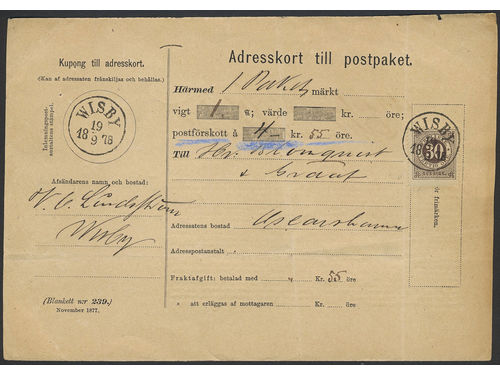 Kupong till adresskort.
(Kan af adressaten frånskiljas och behållas.)
Inlemningspost-
anstaltens stämpel.
WISBY
19
18 9 78
Afsändarens namn och bostad:
Wisby
(Blankett n:r 239.)
November 1877.
Adresskort till postpaket.
Härmed 1 Paket märkt
vigt 1. ℔; värde kr. öre;
postförskott å 4 kr. 55 öre.
Till Hr. Blomquist
& Graaf
Adressatens bostad Oscarshamn
Adresspostanstalt
Fraktafgift: betalad med " Kr. 55 öre
" att erläggas af mottagaren " Kr. öre
WISBY
18
30
SVERIGE
för frimärken.